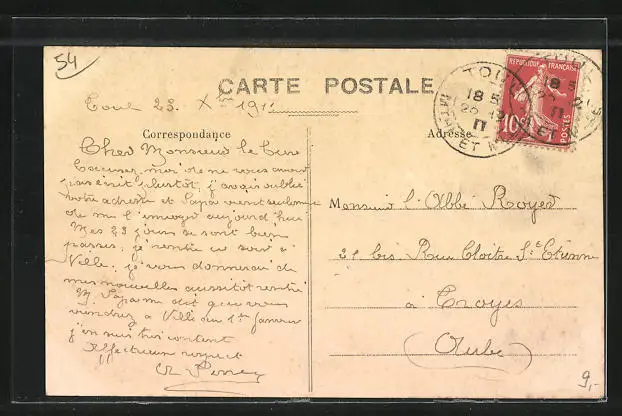 54
CARTE POSTALE
Toul 23. Xbre 1911
Correspondance
Adresse
Cher Monsieur le Curé
Excusez moi de ne vous avoir
pas écrit plustôt; j'avais oublié
votre adresse et Papa vient seulement
de me l'envoyer aujourd'hui
Mes 23 jours se sont bien
passés; je rentre ce soir à
Ville; je vous donnerai de
mes nouvelles aussitôt rentré
Papa me dit que vous
viendrez à Ville au 1er Janvier
j'en suis très content
Affectueux respect
Monsieur l'Abbé Royer
21 bis Rue Cloître St Etienne
à Troyes
(Aube)
REPUBLIQUE FRANÇAISE
10c
POSTES
TOUL
18 5
ET M
9,-